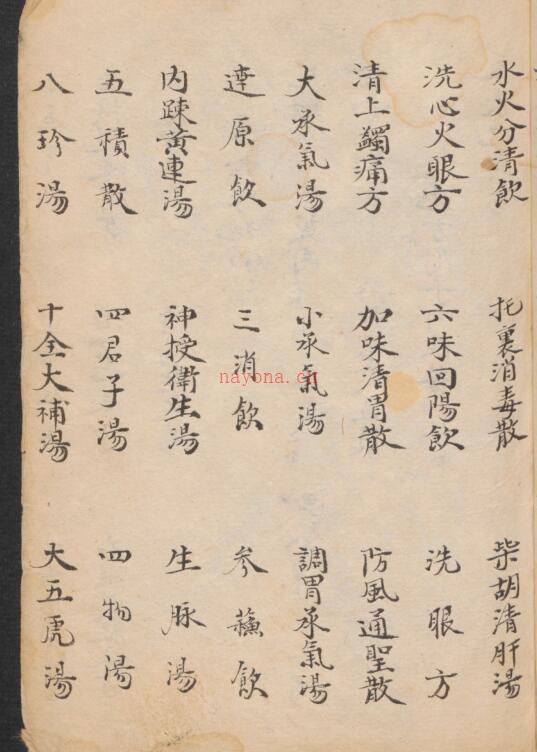 水火分清飲 托裏消毒散 柴胡清肝湯
洗心火眼方 六味回陽飲 洗眼方
清上蠲痛方 加味清胃散 防風通聖散
大承氣湯 小承氣湯 調胃承氣湯
達原飲 三消飲 參蘇飲
内踈黄連湯 神授衛生湯 生脉湯
五積散 四君子湯 四物湯
八珍湯 十全大補湯 大五虎湯
nayona.cn